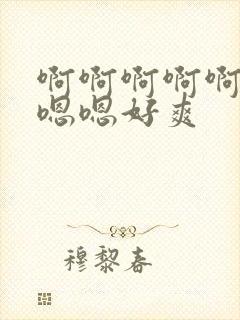 啊啊啊啊啊
嗯嗯好爽
穆黎春